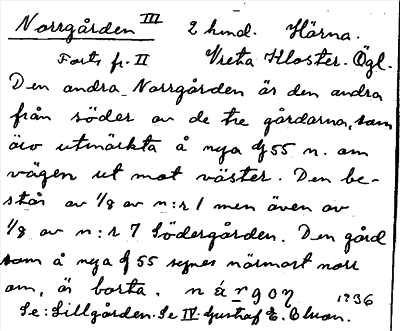 Norrgården III 2 hmd. Härna.
Forts. fr. II Vreta Kloster. Ögl.
Den andra Norrgården är den andra
från söder av de tre gårdarna, som
äro utmärkta å nya f 55 n. om
vägen ut mot väster. Den be-
står av 1/8 av n:r 1 men även av
1/8 av n:r 7 Södergården. Den gård
som å nya f 55 synes närmast norr
om, är borta. 1936
Se: Lillgården. Se IV. Gustaf E. Olson.